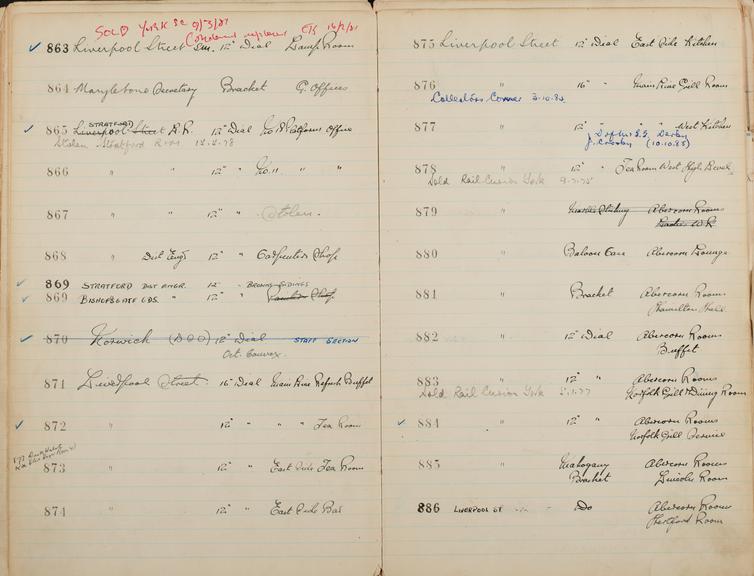 SOLD YORK
863 Liverpool Street 12" Dial Lamp Room
864 Marylebone Secretary Bracket G. Offices
STRATFORD
865 Liverpool Street 12" Dial No. 8 Platform Office
Stolen Stratford 12.2.78
866 " " 12" " No. 11 " "
867 " " 12" " Stolen.
868 " Dist Engr 12" " Carpenters Shop
869 STRATFORD DIST ENGR. 12" "
869 BISHOPSGATE GDS. " 12" "
870 Norwich (DOO) 12" Dial STAFF SECTION
Oct. Convex.
871 Liverpool Street. 16" Dial Main Line Refresh Buffet
872 " 12" " " Tea Room
873 " 12" " East Side Tea Room
874 " 12" " East Side Bar
875 Liverpool Street 12" Dial East Side Kitchen
876 " 16" " Main Line Grill Room
Collectors Corner 3.10.85
877 " 12" " West Kitchen
Derby
J. Crosby (10.10.85)
878 " 12" " Tea Room West High Level
Sold Rail York
879 " Abercorn Rooms
880 " Baloon Case Abercorn Lounge
881 " Bracket Abercorn Rooms
Hamilton Hall
882 " 12" Dial Abercorn Rooms
Buffet
883 " 12" " Abercorn Rooms
Sold Rail York Norfolk Grill Dining Room
884 " 12" " Abercorn Rooms
Norfolk Grill Service
885 " Mahogany Abercorn Rooms
Bracket Lincoln Room
886 LIVERPOOL ST Do Abercorn Rooms
Hertford Room